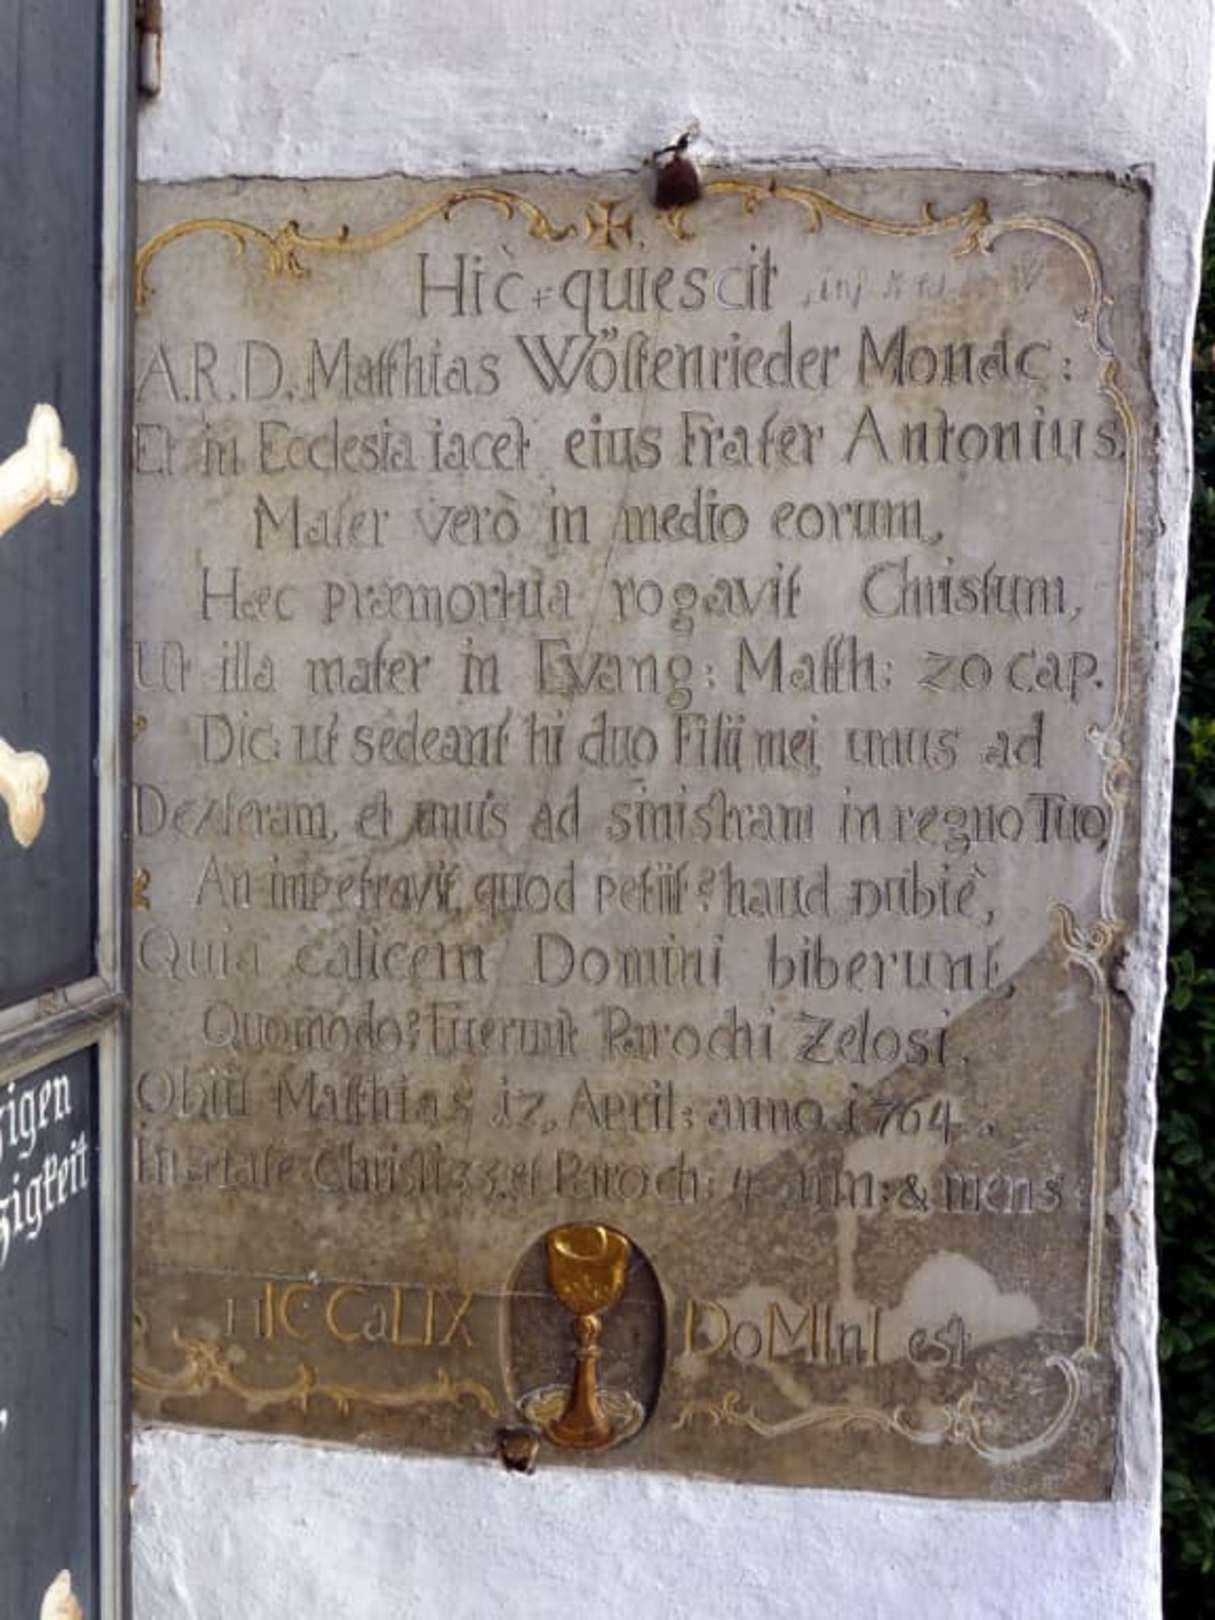 Hic quiescit
A.R.D. Matthias Wöstenrieder Monac:
Et in Ecclesia iacet eius Frater Antonius,
Mater verò in medio eorum,
Hæc præmortua rogavit Christum,
Ut illa mater in Evang: Matth: 20 cap.
Dic: ut sedeant hi duo Filii mei, unus ad
Dexteram, et unus ad sinistram in regno Tuo,
An impetravit, quod petiit? haud dubiè,
Quia calicem Domini biberunt,
Quomodo? Fuerunt Parochi Zelosi.
Obiit Matthias 17. April: anno 1764.
Paroch: 4 & mens
HIC CaLIX DoMInI est
zigen
zigkeit